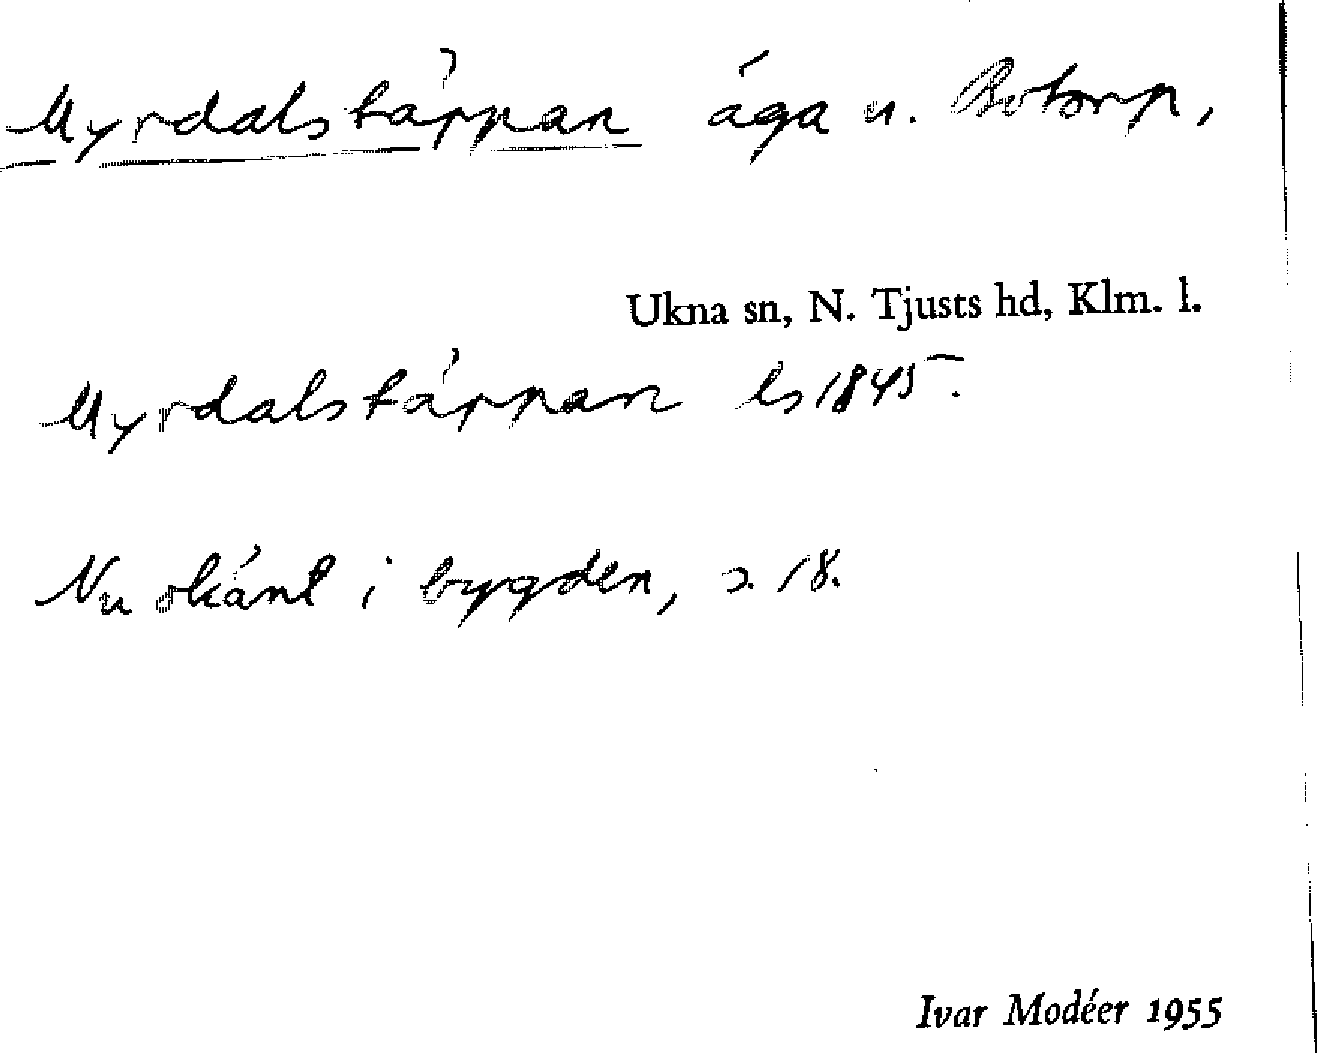 Myrdalstäppan äga u. Botorp,
Ukna sn, N. Tjusts hd, Klm. l.
Myrdalstäppan ls 1845.
Nu okänt i bygden, s. 18.
Ivar Modéer 1955